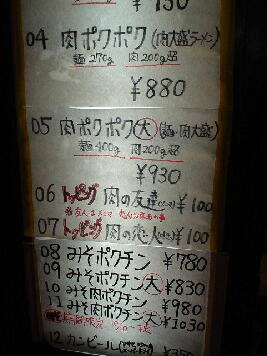 ¥730
04 肉ポクポク(肉大盛ラーメン)
麺270g 肉200g超
¥880
05 肉ポクポク大(麺・肉大盛)
麺400g 肉200g超
¥930
06 トッピング 肉の友達 ¥100
07 トッピング 肉の恋人 ¥100
08 みそポクチン ¥780
09 みそポクチン大 ¥830
10 みそ肉ポクチン ¥980
11 みそ肉ポクチン大 ¥1030
12 カンビール ¥350